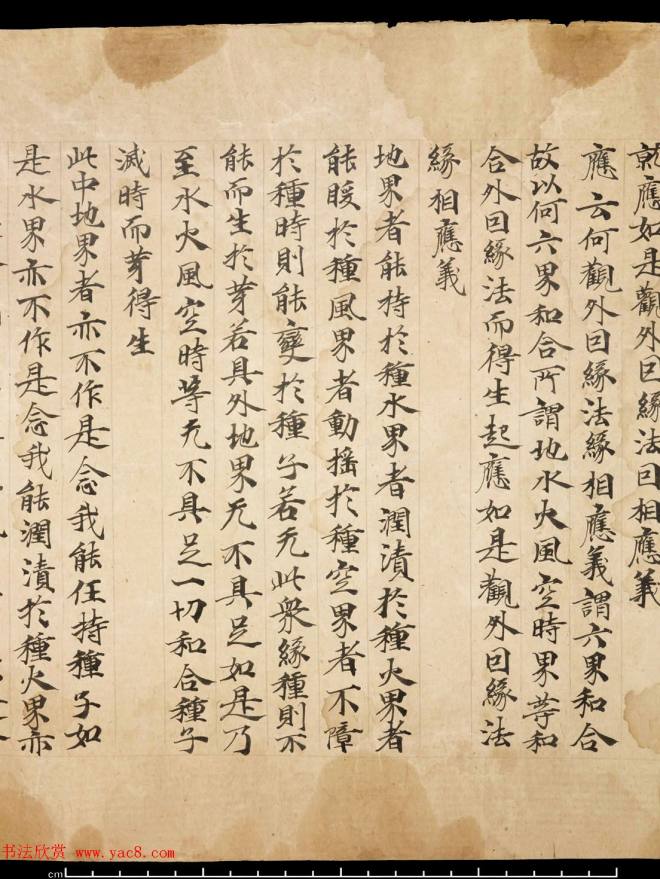 就應如是觀外因緣法因相應義
應云何觀外因緣法緣相應義謂六界和合
故以何六界和合所謂地水火風空時界等和
合外因緣法而得生起應如是觀外因緣法
緣相應義
地界者能持於種水界者潤漬於種火界者
能暖於種風界者動搖於種空界者不障
於種時則能變於種子若无此衆緣種則不
能而生於芽若具外地界无不具足如是乃
至水火風空時等无不具足一切和合種子
滅時而芽得生
此中地界者亦不作是念我能任持種子如
是水界亦不作是念我能潤漬於種火界亦
书法欣赏 www.yac8.com
cm